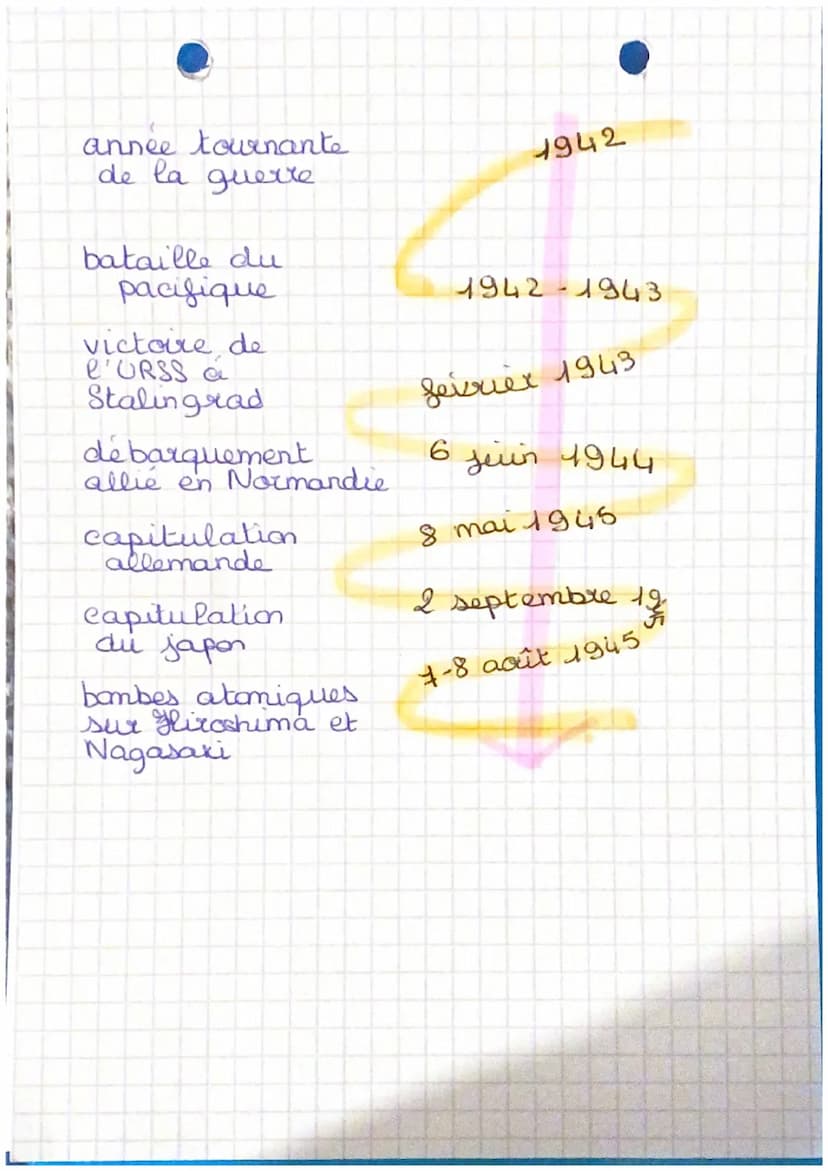 année tournante
de la guerre
1942
bataille du
pacifique
1942 - 1943
victoire de
l'URSS à
Stalingrad
février 1943
débarquement
allié en Normandie
6 juin 1944
capitulation
allemande
8 mai 1945
capitulation
du japon
2 septembre 1945
bombes atomiques
sur Hiroshima et
Nagasaki
7-8 août 1945